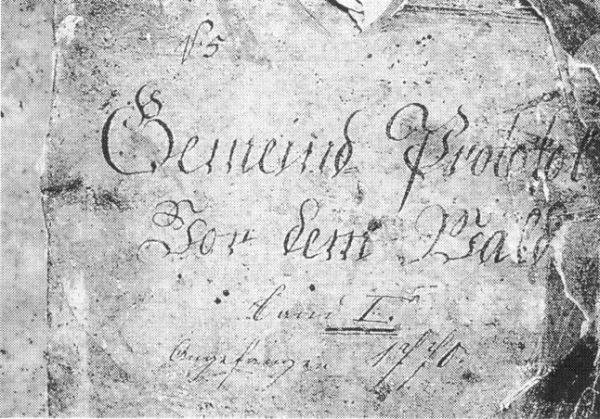 N. 5
Gemeind Protokol
Vor dem Wald
band I.
Angefangen 1770.